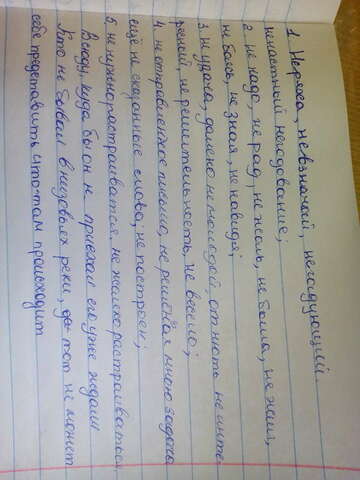 1. Неряха, невзначай, негодующий.
ненастный негодование;
2. не надо, не рад, не жаль, не была, не наш,
не боясь, не зная, не навидя;
3. не удача, далеко не молодой, отнюдь не инте-
ресный, не решительность, не весело;
4. не отправленное письмо, не решённая мною задача
ещё не сказанные слова, не построен;
5. не нужно расстраиваться, не желая расстраиваться
Всюду, куда бы он не приехал его уже ждали
Кто не бывал в низовьях реки, тот не может
себе представить что там происходит